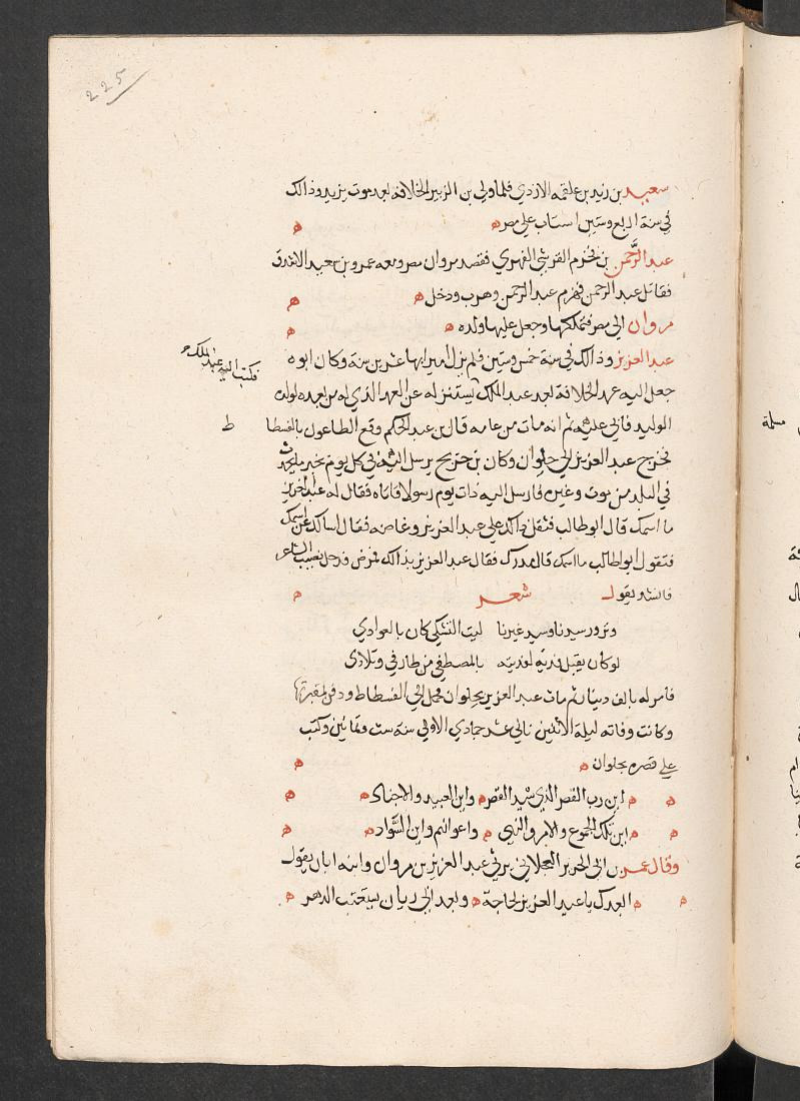 225
سعيد بن زيد بن علقمه الازدي فلما ولي بن الزبير الخلافه بعد موت يزيد وذالك
في سنة اربع وستين استناب على مصر
عبد الرحمن بن مخزم القرشي الفهري فقصد مروان مصر ومعه عمرو بن سعيد الاشدق
فقاتل عبد الرحمن فهزم عبد الرحمن وهرب ودخل
مروان الى مصر فتملكها وجعل عليها ولده
عبد العزيز وذالك في سنة خمس وستين فلم يزل اميرا بها عشرين سنة وكان ابوه
جعل اليه عهد الخلافة بعد عبد الملك يستنزله عن العهد الذي له من بعده لولده
فكتب اليه عبد الملك
الوليد فابى عليه ثم انه مات من عامه قال بن عبد الحكم وقع الطاعون بالفسطا
ط
فخرج عبد العزيز الى حلوان وكان بن حديج يرسل اليه في كل يوم بخبر ما يحدث
في البلد من موت وغيره فارسل اليه ذات يوم رسولا فاتاه فقال له عبد العزيز
ما اسمك قال ابو طالب فثقل ذالك على عبد العزيز وغاضه فقال اسالك عن اسمك
فتقول ابو طالب ما اسمك قال مدرك فقال عبد العزيز بذالك فمرض فدخل نصيب الشاعر
فانشد يقول شعر
ونزور سيدنا وسيد غيرنا ليت التشكي كان بالعوادي
لو كان يقبل فدية لفديته بالمصطفي من طارفي وتلادى
فامر له بالف دينار ثم مات عبد العزيز بحلوان فحمل الى الفسطاط ودفن بمقبرتها
وكانت وفاته ليلة الاثنين ثاني عشر جمادي الاولى سنة ست وثمانين وكتب
على قصره بحلوان
اين رب القصر الذي شيد القصر واين العبيد والاجناد
اين تلك الجموع والامر والنهي واعوانهم واين السواد
وقال عمر بن ابى الحرير العجلاني يرثي عبد العزيز بن مروان وابنه ابان يقول
ابعدك يا عبد العزيز لحاجة وبعد ابى ريان يستعتب الدهر